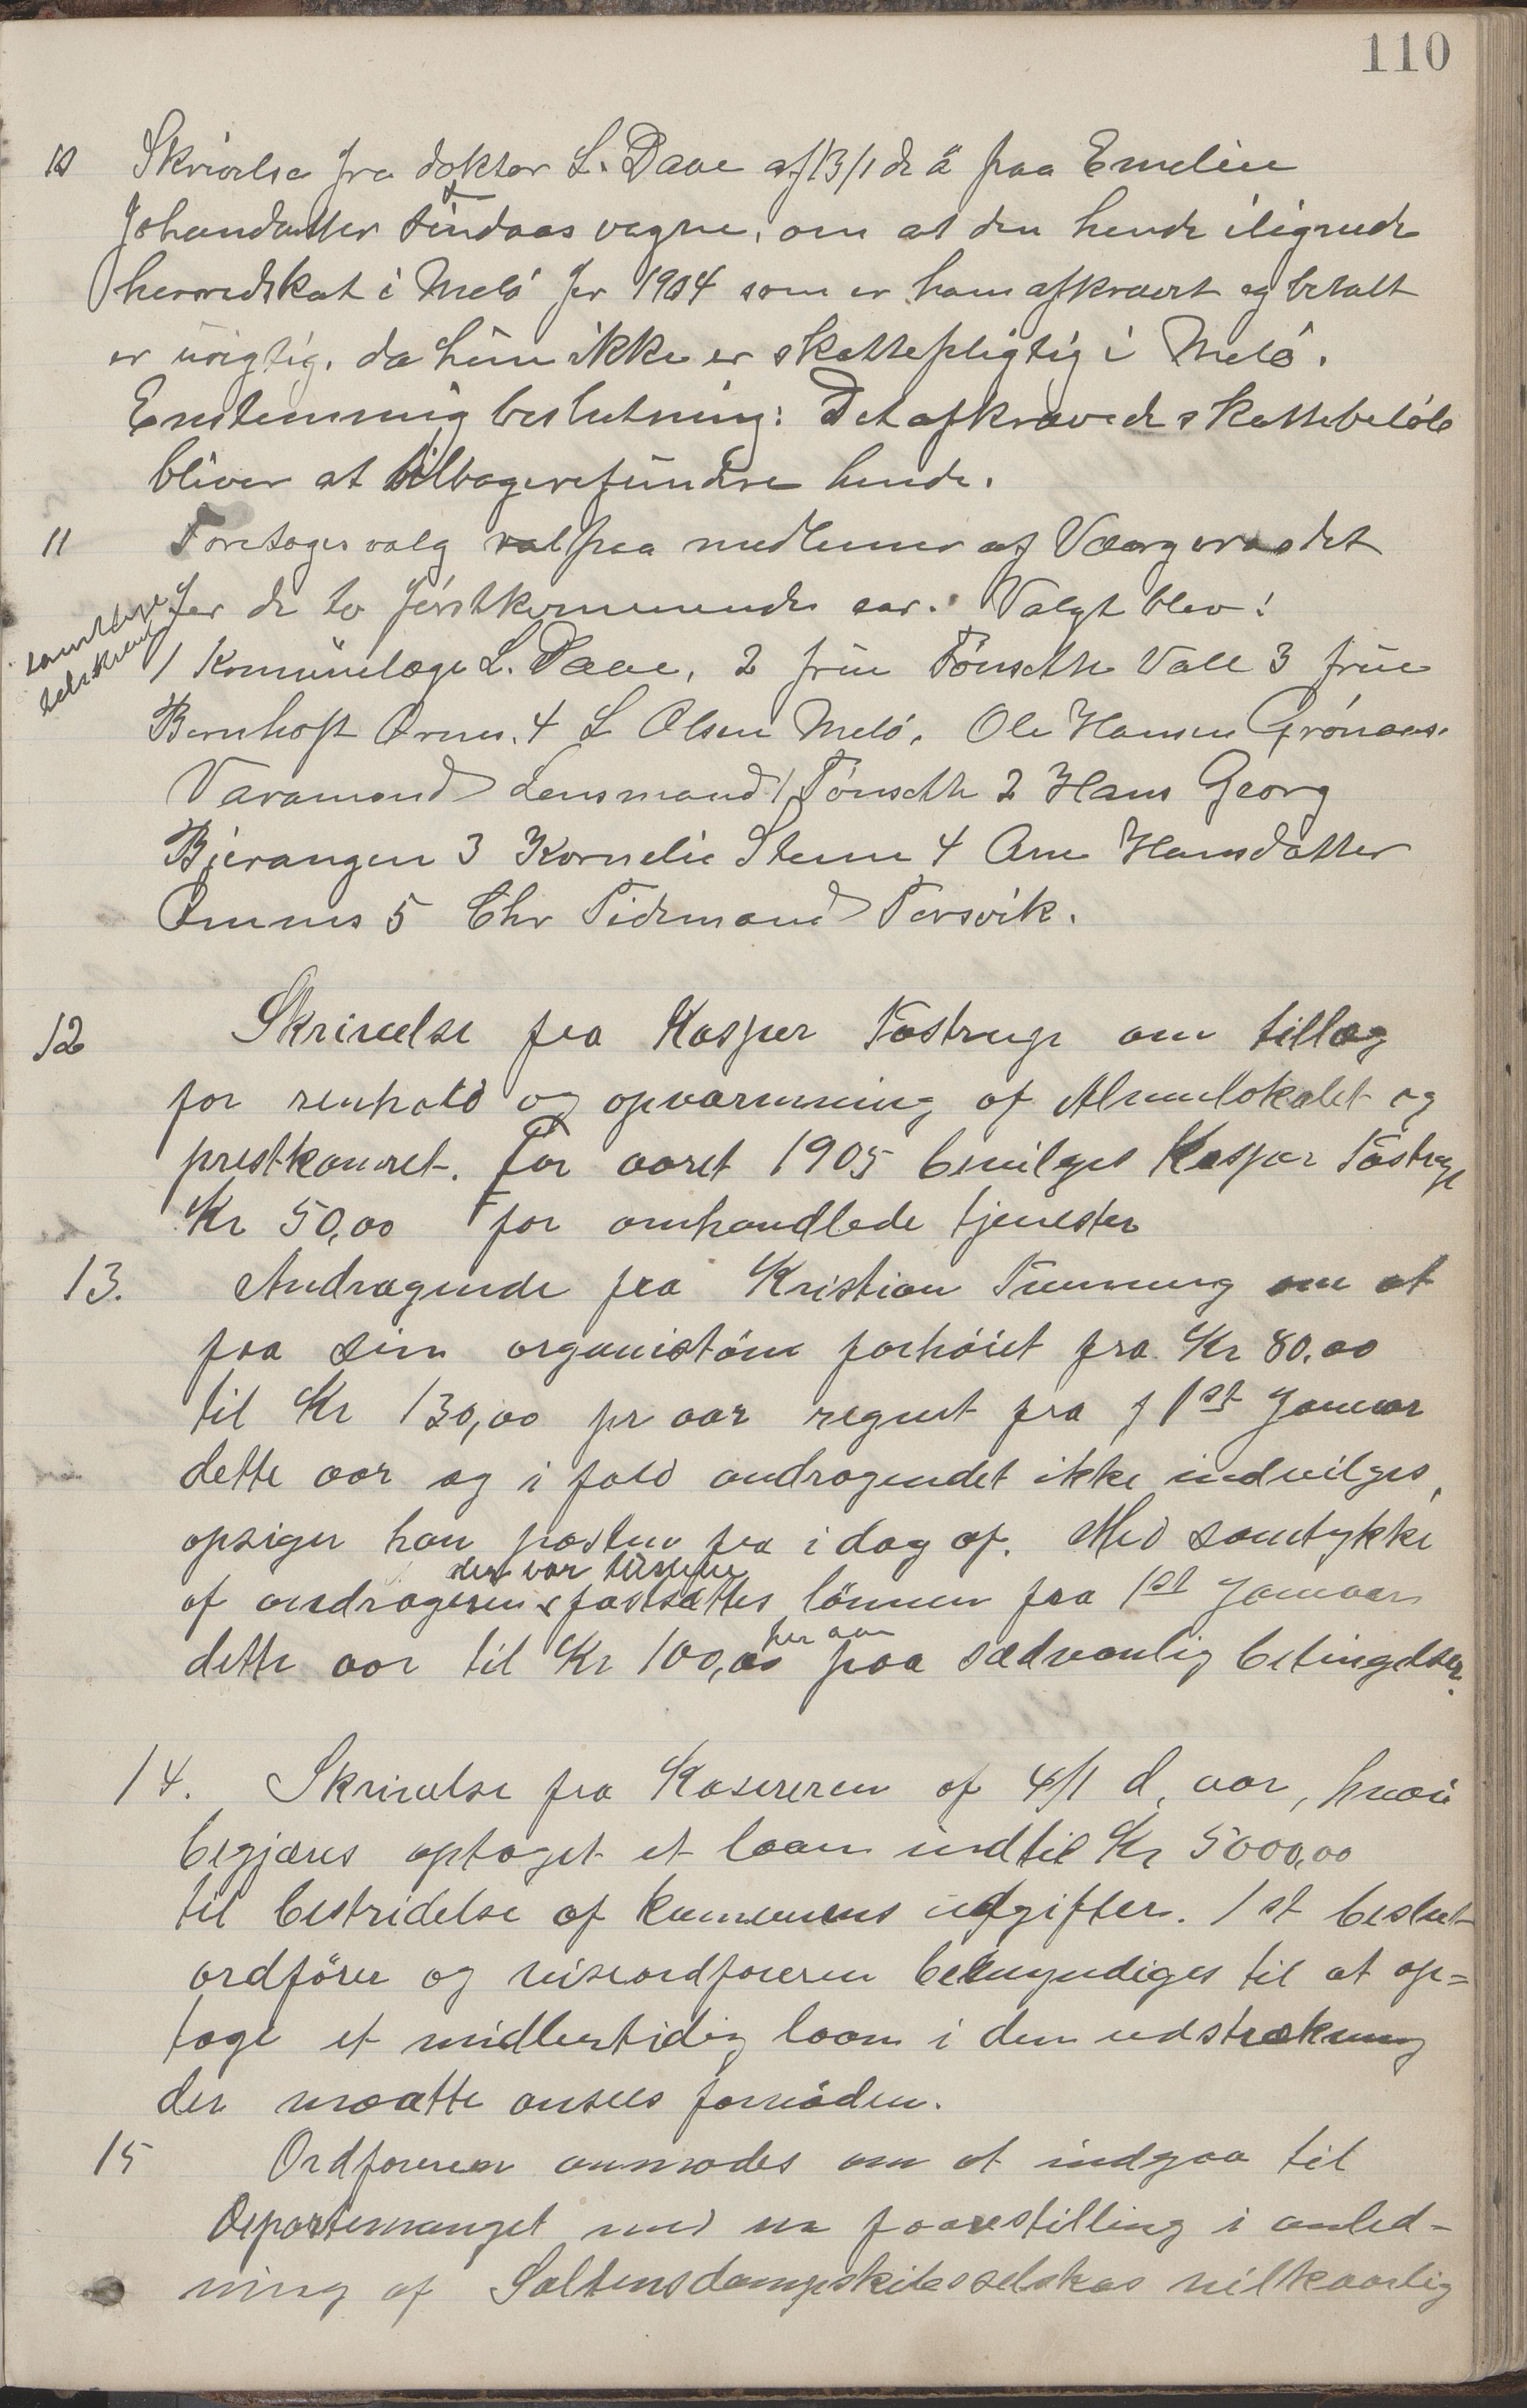 110
10 Skrivelse fra doktor L. Daae af 13/1 d. å paa Emelie
Johansdatter Lindaas vegne, om at den hende ilignede
herredskat i Melö for 1904 som er ham afkrævet og betalt
er urigtig, da hun ikke er skattepligtig i Melö.
Enstemmig beslutning: Det afkrævede skattebelöb
bliver at tilbagerefundere hende.
11 Foretages valg val paa medlemmer af Værgeraadet
for de to förstkommende aar. Valgt blev:
samtlige
1 Kommunelæge L. Daae, 2 frue Tönseth Vall 3 frue
Bernhoft Ørnes. 4 L Olsen Melö, Ole Hansen Grönaas.
Varamænd Lensmand 1 Tönseth 2 Hans Georg
Bjerangen 3 Kornelie Steen 4 Ane Hansdatter
Ømmes 5 Chr Tidemand Torsvik.
12 Skrivelse fra Kasper Tostrup om tillæg
for renhold og opvarmning af Almulokalet og
prestkontoret. For aaret 1905 bevilges Kasper Tostrup
Kr 50,00 for omhandlede tjenester
13. Andragende fra Kristian om at
faa sin organistlön forhöiet fra Kr 80.00
til Kr 130,00 pr aar regnet fra 1st Januar
dette aar og i fald andragendet ikke indvilges,
opsiger han posten fra i dag af. Med samtykke
der var tilstede
af andrageren fastsættes lönnen fra 1st Januar
per aar
dette aar til Kr 100,00 paa sædvanlig betingelser.
14. Skrivelse fra Kasereren af 4/1 d, aar, hvori
begjæres optaget et laan indtil Kr 5000,00
til bestridelse af kommunens udgifter. 1 st beslut
ordförer og viseordföreren bemyndiges til at op=
tage et midlertidig laan i den udstrækning
der maatte ansees fornöden.
15 Ordföreren anmodes om at indgaa til
Departemanget med en foorestilling i anled-
ning af Saltensdampskibsselskas vilkaarlig